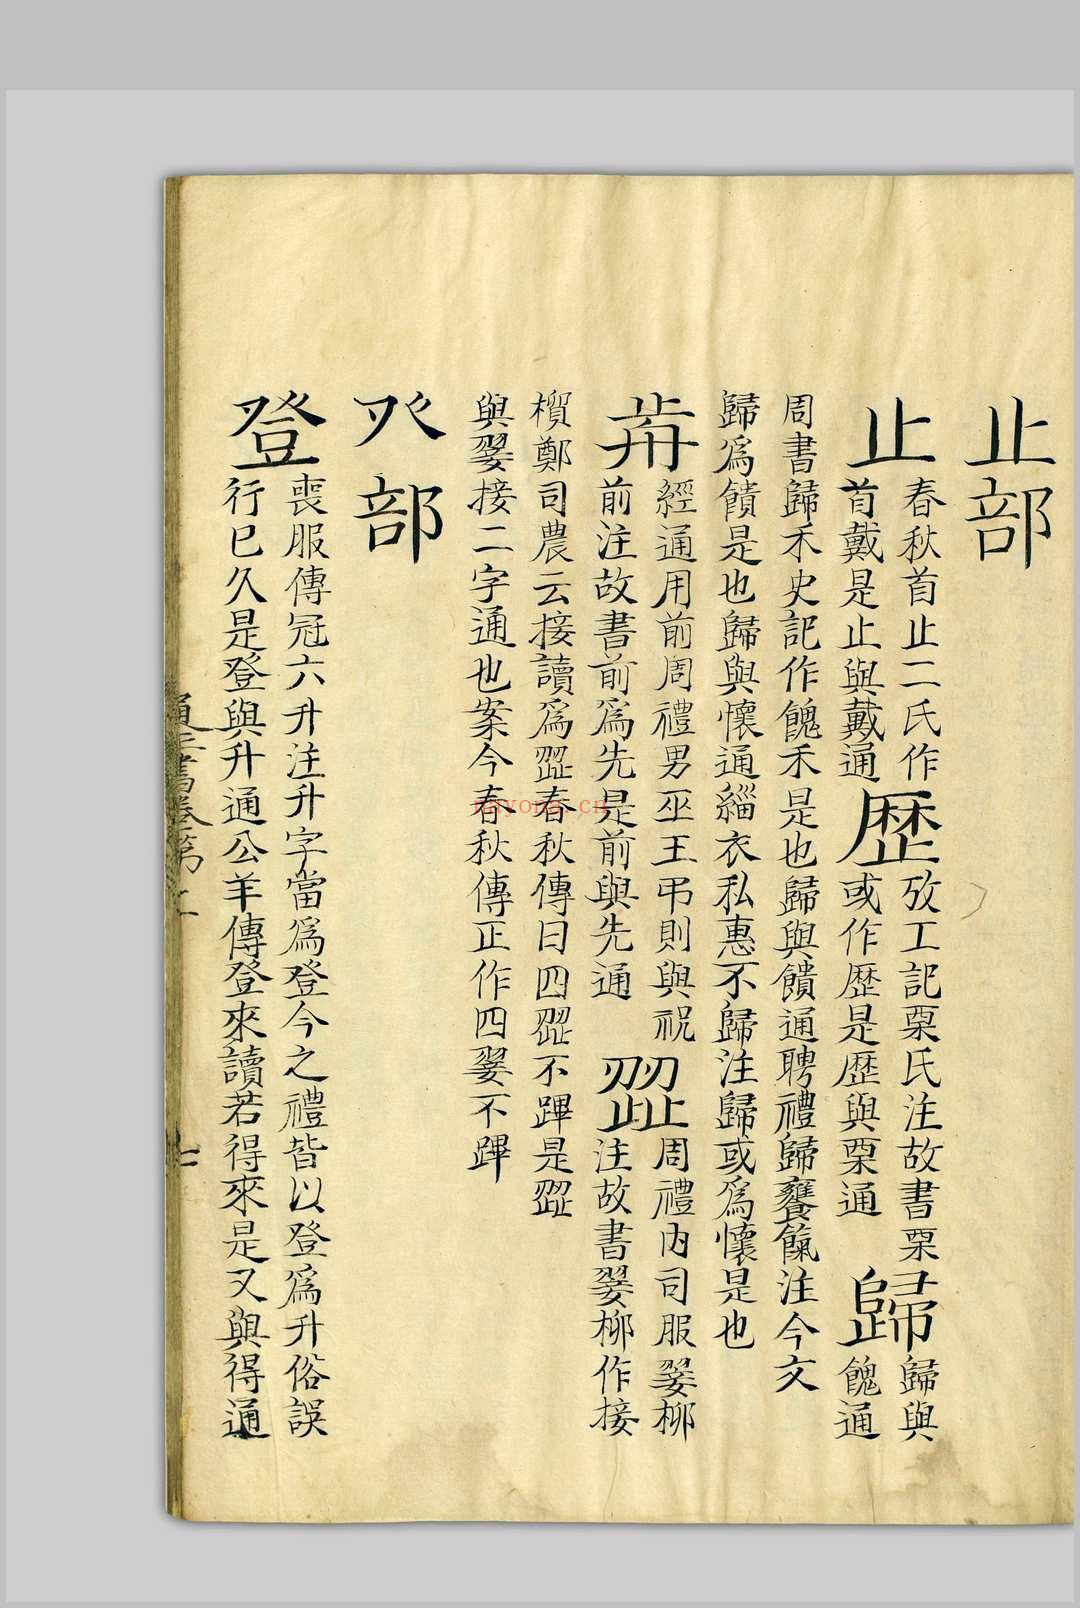 止部
止春秋首止二氏作
首戴是止與戴通
歷攷工記㮚氏注故書㮚
或作歷是歷與㮚通
歸歸與
餽通
周書歸禾史記作餽禾是也歸與饋通聘禮歸饔餼注今文
歸爲饋是也歸與懷通緇衣私惠不歸注歸或爲懷是也
歬經通用前周禮男巫王弔則與祝
前注故書前爲先是前與先通
歰周禮內司服翣柳
注故書翣柳作接
檟鄭司農云接讀爲歰春秋傳曰四歰不蹕是歰
與翣接二字通也案今春秋傳正作四翣不蹕
癶部
登喪服傳冠六升注升字當爲登今之禮皆以登爲升俗誤
行巳久是登與升通公羊傳登來讀若得來是又與得通
七
nayona.cn